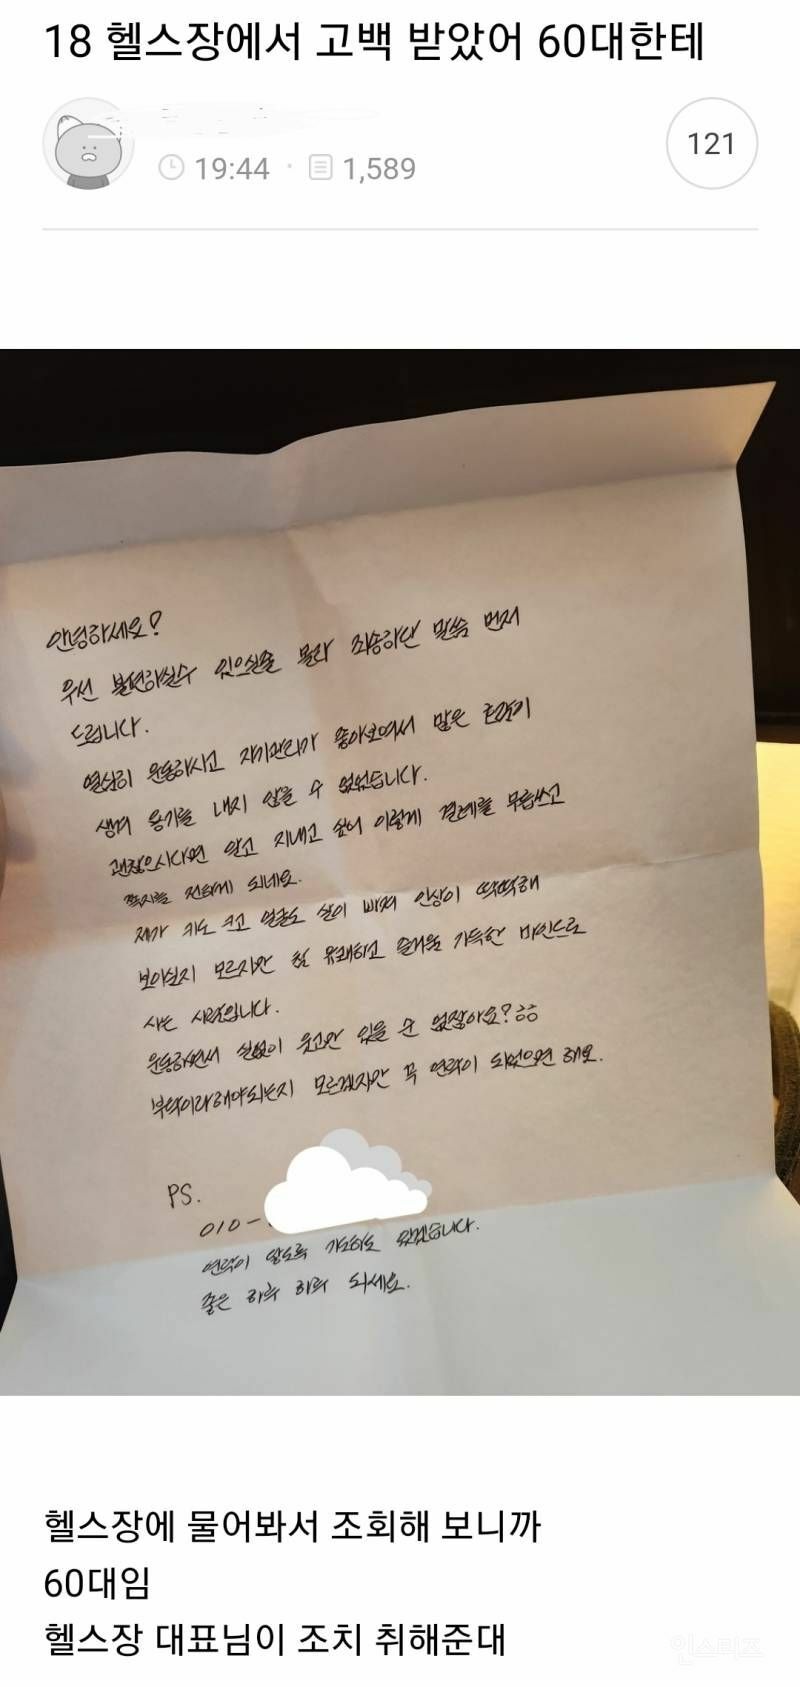 18 헬스장에서 고백 받았어 60대한테
19:44 · 1,589
121
안녕하세요?
우선 불편하실수 있으실줄 몰라 죄송하단 말씀 먼저
드립니다.
열심히 운동하시고 자기관리가 좋아보여서 많은 호감이
생겨 용기를 내지 않을 수 없었습니다.
괜찮으시다면 알고 지내고 싶어 이렇게 결례를 무릅쓰고
쪽지를 전하게 되네요.
제가 키도 크고 얼굴도 살이 빠져 인상이 딱딱해
보이실지 모르지만 참 유쾌하고 즐거움 가득한 마인드로
사는 사람입니다.
운동하면서 실없이 웃고만 있을 순 없잖아요? ㅎㅎ
부탁이라해야되는지 모르겠지만 꼭 연락이 되었으면 해요.
PS.
010-
연락이 않도록 기다리도 있겠습니다.
좋은 하루 하루 되세요.
헬스장에 물어봐서 조회해 보니까
60대임
헬스장 대표님이 조치 취해준대
인스티즈